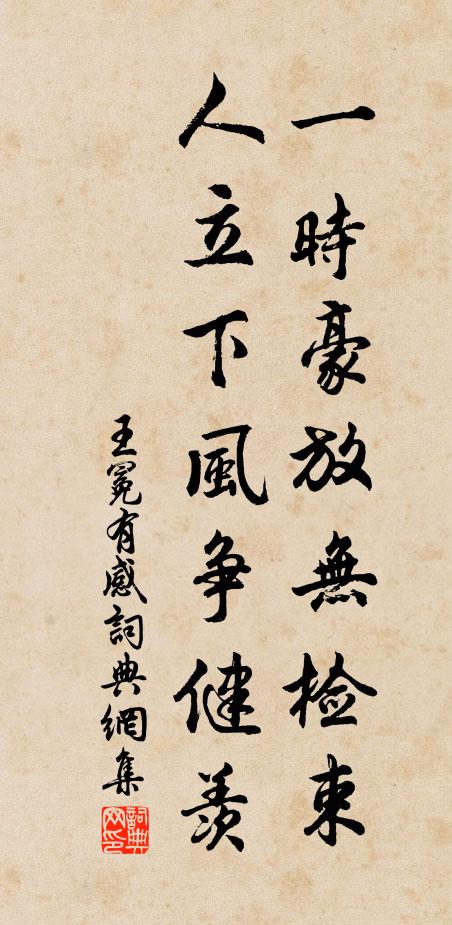 一時豪放無检束
人立下風争健羨
王冕有感詞典網集
詞典
网印